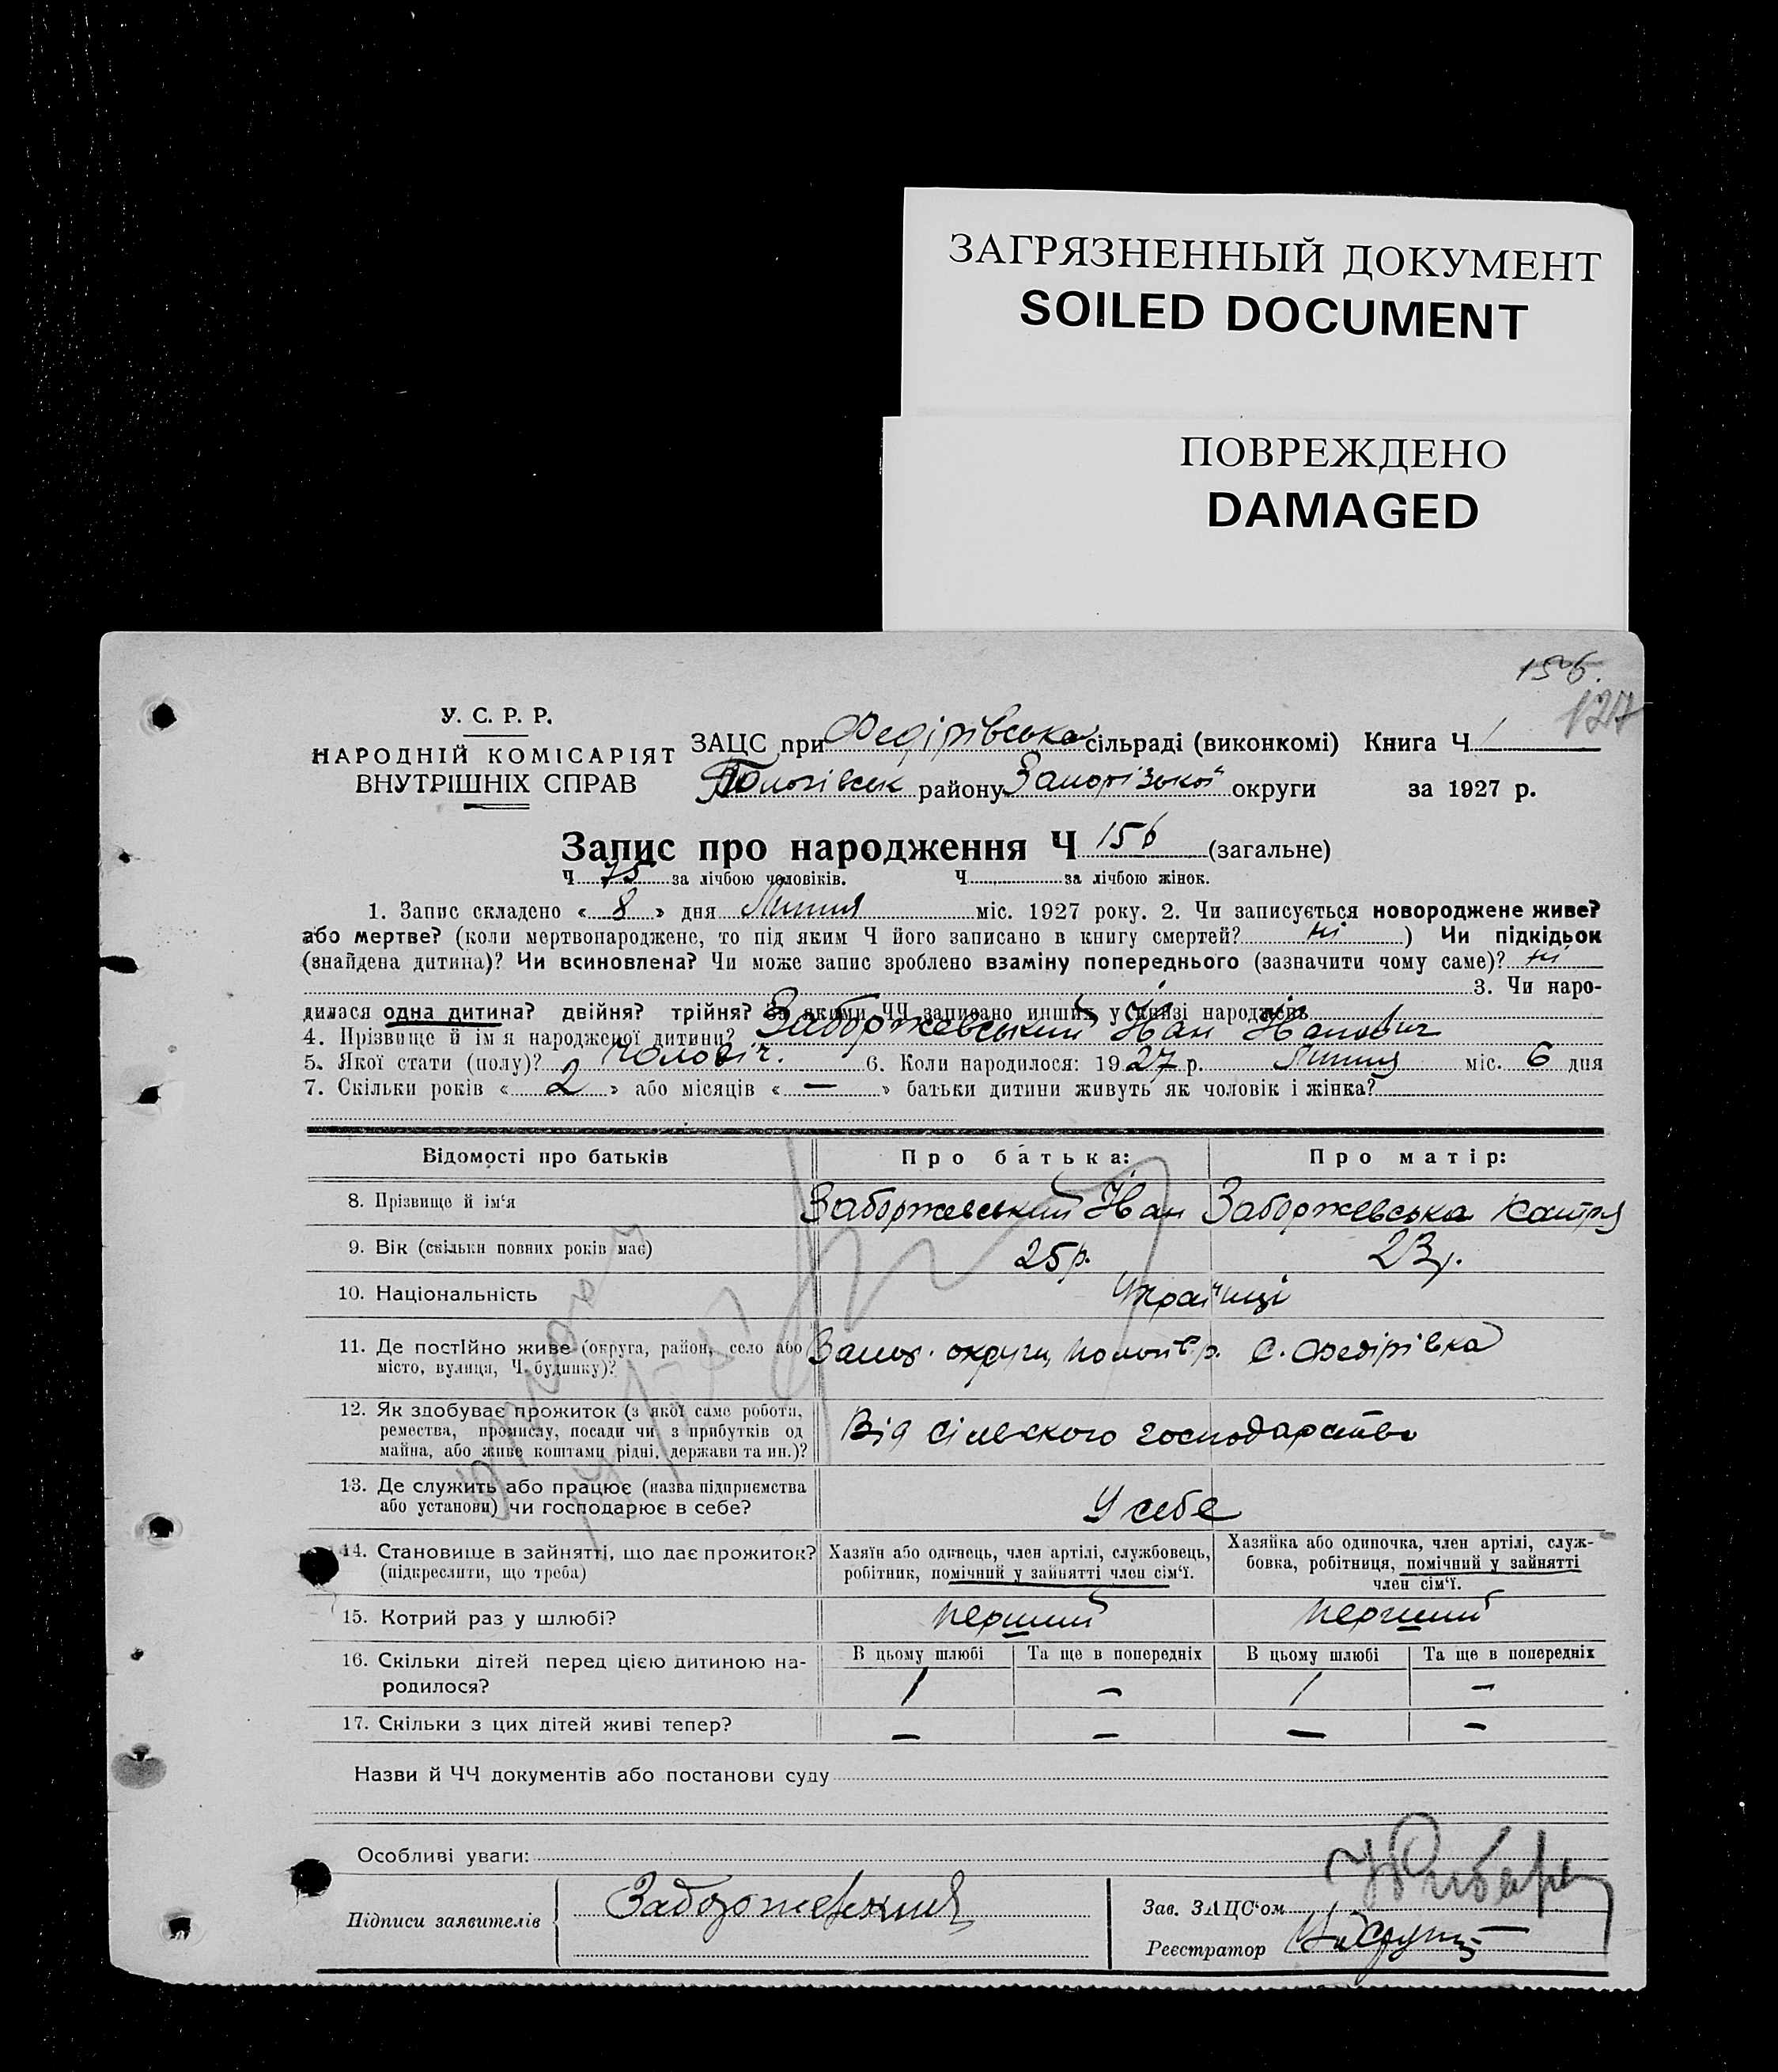 ЗАГРЯЗНЕННЫЙ ДОКУМЕНТ
SOILED DOCUMENT
ПОВРЕЖДЕНО
DAMAGED
156.
127
У. С. Р. Р.
НАРОДНІЙ КОМІСАРІЯТ
ВНУТРІШНІХ СПРАВ
ЗАЦС при Федірівська сільраді (виконкомі) Книга Ч 1
Пологівськ району Запорізької округи за 1927 р.
Запис про народження Ч 156 (загальне)
Ч 75 за лічбою чоловіків. Ч за лічбою жінок.
1. Запис складено « 8 » дня Липня міс. 1927 року. 2. Чи записується новороджене живе?
або мертве? (коли мертвонароджене, то під яким Ч його записано в книгу смертей? ні ) Чи підкідьок
(знайдена дитина)? Чи всиновлена? Чи може запис зроблено взаміну попереднього (зазначити чому саме)? ні
3. Чи наро-
дилася одна дитина? двійня? трійня? За якими ЧЧ записано инших у книзі народжень
4. Прізвище й ім'я народженої дитини? Заборжевський Іван Іванович
5. Якої стати (полу)? Чоловіч. 6. Коли народилося: 1927 р. Липня міс. 6 дня
7. Скільки років « 2 » або місяців « — » батьки дитини живуть як чоловік і жінка?
Відомості про батьків Про батька: Про матір:
8. Прізвище й ім'я Заборжевський Іван Заборжевська Катря
9. Вік (скільки повних років має) 25 р. 23 р.
10. Національність Українці
11. Де постійно живе (округа, район, село або
місто, вулиця, Ч. будинку)? Запор. округи, Полог. р. с. Федірівка
12. Як здобуває прожиток (з якої саме роботи,
ремества, промислу, посади чи з прибутків од
майна, або живе коштами рідні, держави та ин.)? Від сілького господарства
13. Де служить або працює (назва підприємства
або установи) чи господарює в себе? У себе
14. Становище в зайнятті, що дає прожиток?
(підкреслити, що треба)
Хазяїн або одинець, член артілі, службовець,
робітник, помічний у зайнятті член сім'ї.
Хазяйка або одиночка, член артілі, служ-
бовка, робітниця, помічний у зайнятті
член сім'ї.
15. Котрий раз у шлюбі? перший перший
16. Скільки дітей перед цією дитиною на-
родилося?
В цьому шлюбі Та ще в попередніх В цьому шлюбі Та ще в попередніх
1 — 1 —
17. Скільки з цих дітей живі тепер? — — — —
Назви й ЧЧ документів або постанови суду
Особливі уваги:
Підписи заявителів
Зав. ЗАЦС'ом
Реєстратор